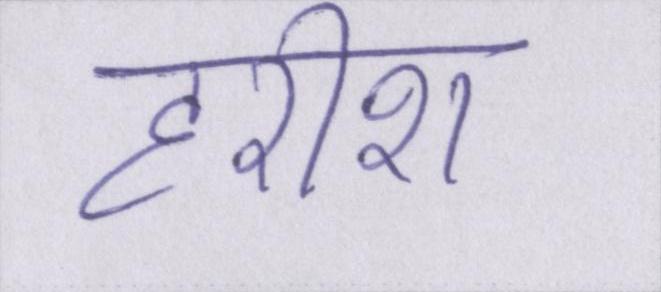 हरीश